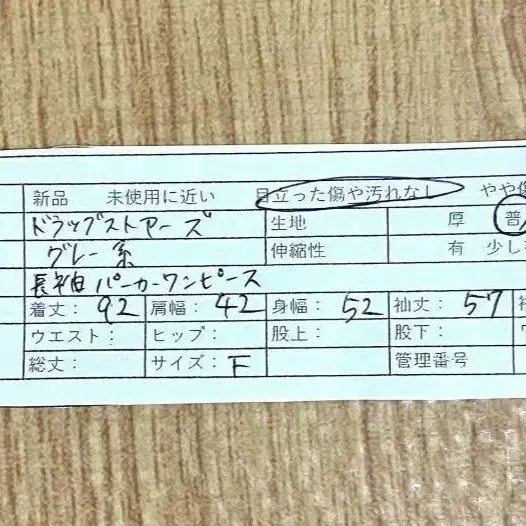 新品 未使用に近い 目立った傷や汚れなし やや傷
ドラッグストアーズ 生地 厚 普
グレー系 伸縮性 有 少し
長袖パーカーワンピース
着丈: 92 肩幅: 42 身幅: 52 袖丈: 57
ウエスト: ヒップ: 股上: 股下:
総丈: サイズ: F 管理番号